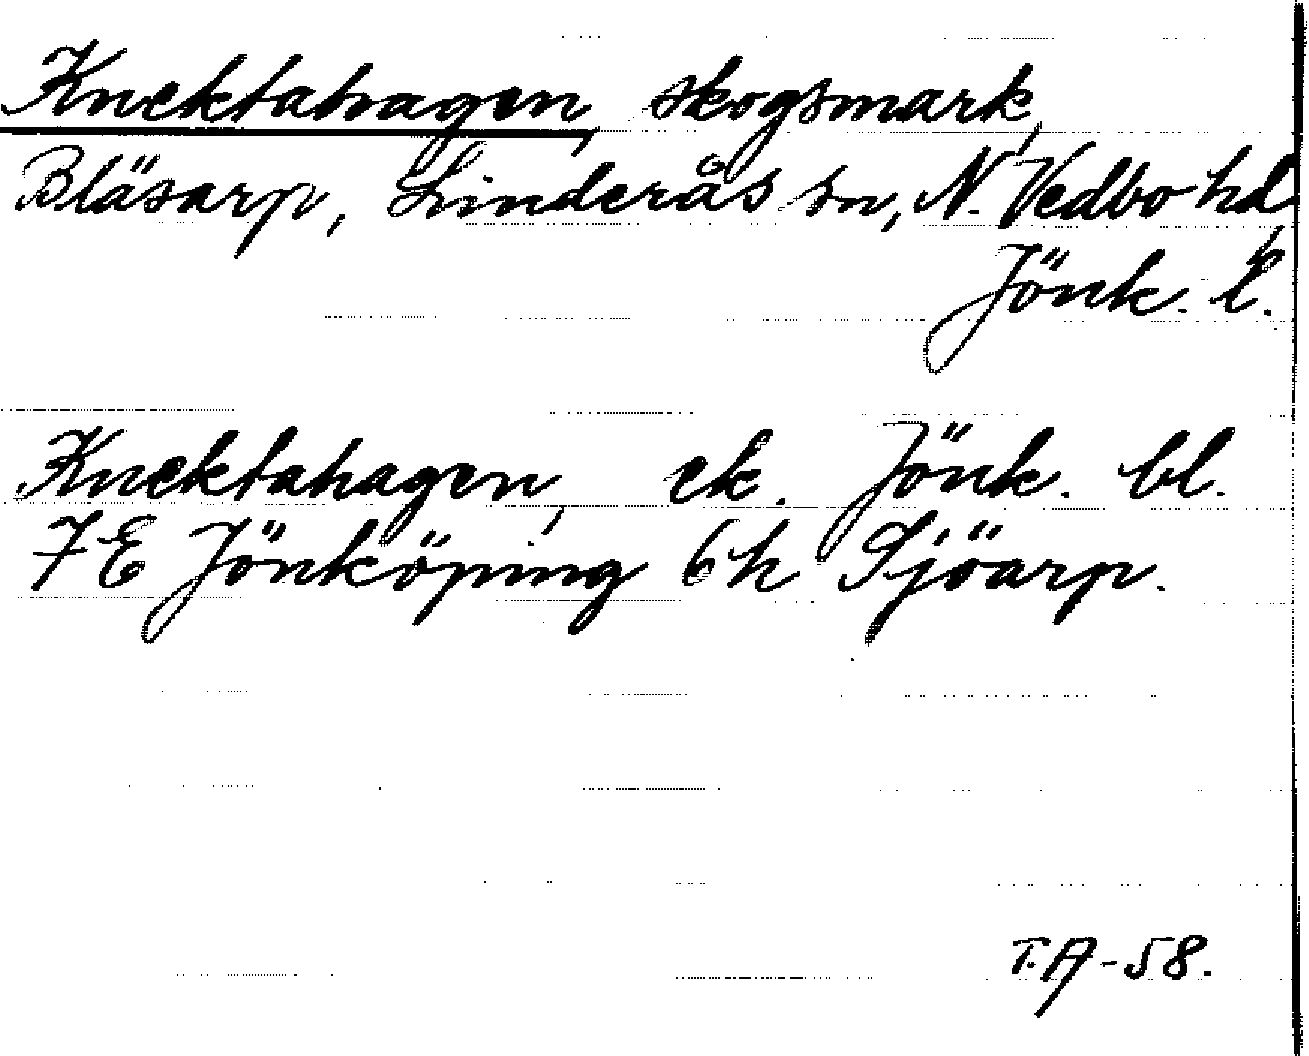 Knektahagen, skogsmark,
Bläsarp, Linderås sn, N. Vedbo hd,
Jönk. l.
Knektahagen, ek. Jönk. bl.
7E Jönköping 6h Sjöarp.
T.A-58.